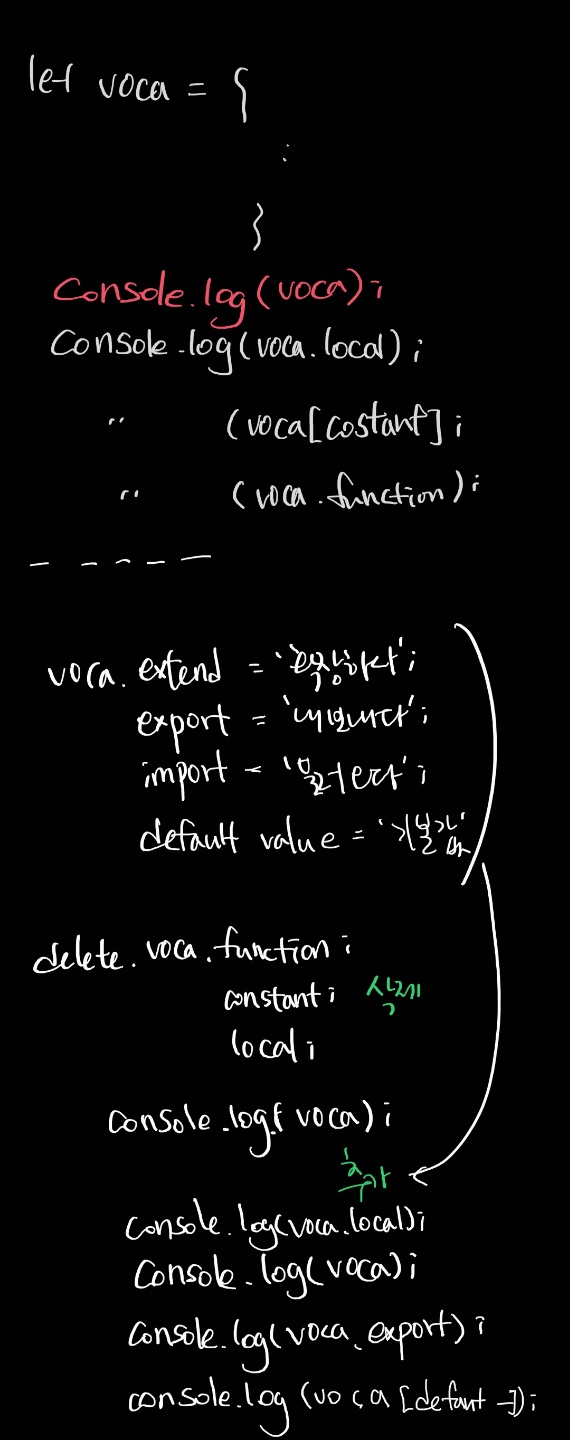 let voca = {
:
}
Console.log(voca);
Console.log(voca.local);
" (voca[costant];
" (voca.function);
- - - - -
voca. extend = '확장하다';
export = '내보내다';
import = '불러오다';
default value = '기본값'
delete. voca.function;
constant; 삭제
local;
console.log( voca);
추가
console.log(voca.local);
Console.log(voca);
console.log(voca.export);
console.log (voca [defaut -]);